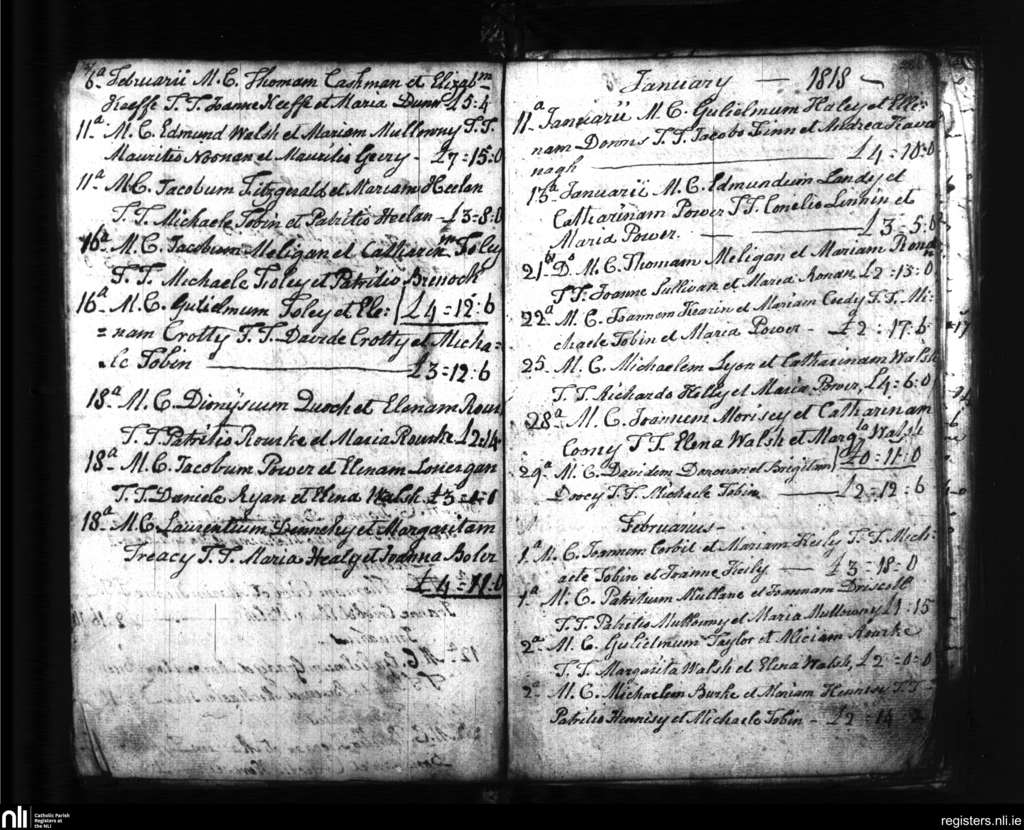 6a Februarii M.C. Thomam Cashman et Elizabm
Keeffe T.T. Joanne Keeffe et Maria Dunn £5=4
11a M.C. Edmund Walsh et Mariam Mullowny T.T.
Mauritio Noonan et Mauritio Geery - £7=15=0
11a M.C. Jacobum Fitzgerald et Mariam Heelan
T.T. Michaele Tobin et Patritio Heelan - £3=8=0
16a M.C. Jacobum Meligan et Catharinm Foley
T.T. Michaele Foley et Patritio Brenock
16a M.C. Gulielmum Foley et Ele= £4=12=6
=nam Crotty T.T. Davide Crotty et Micha=
le Tobin £3=12=6
18a M.C. Dionysium et Elenam
T.T. Patritio Rourke et Maria Rourke £2=14
18a M.C. Jacobum Power et Elenam Lonergan
T.T. Daniele Ryan et Elena Walsh £3=4=0
18a M.C. Laurentium Dennehy et Margaritam
Treacy T.T. Maria Healy et Joanna Boler
£4=11=0
January — 1818
11a Januarii M.C. Gulielmum Haley et Elle=
nam Downs T.T. Jacobo Finn et Andrea Kava
nagh £4=10=0
15a Januarii M.C. Edmundum Landy et
Catharinam Power T.T. Conelio Linnin et
Maria Power. £3=5=0
21a Do M.C. Thomam Meligan et Mariam
T.T. Joanne Sullivan et Maria Ronan £2=13=0
22a M.C. Joannem Kearin et Mariam Coedy T.T. Mi=
chaele Tobin et Maria Power - £2=17=6
25. M.C. Michaelem Lyon et Catharinam Walsh
T.T. Richardo Kelly et Maria Power, £4=6=0
28a M.C. Joannem Morisey et Catharinam
Comy T.T. Elena Walsh et Marga Walsh
29a M.C. Davidem Donovan et Brigitam £0=11=0
Dovey T.T. Michaele Tobin £2=12=6
Februarius -
1a M.C. Joannem Corbit et Mariam Kesly T.T. Mich=
aele Tobin et Joanne Kesly £3=18=0
1a M.C. Patritium Mullane et Joannam Driscoll
T.T. Patritio Mullowny et Maria Mullowny £1=15
2a M.C. Gulielmum Taylor et Miriam Rourke
T.T. Margarita Walsh et Elena Walsh, £2=0=0
2a M.C. Michaelem Burke et Mariam Hennisy T.T -
Patritio Hennisy et Michaele Tobin - £2=14
nli Catholic Parish
Registers at
the NLI
registers.nli.ie